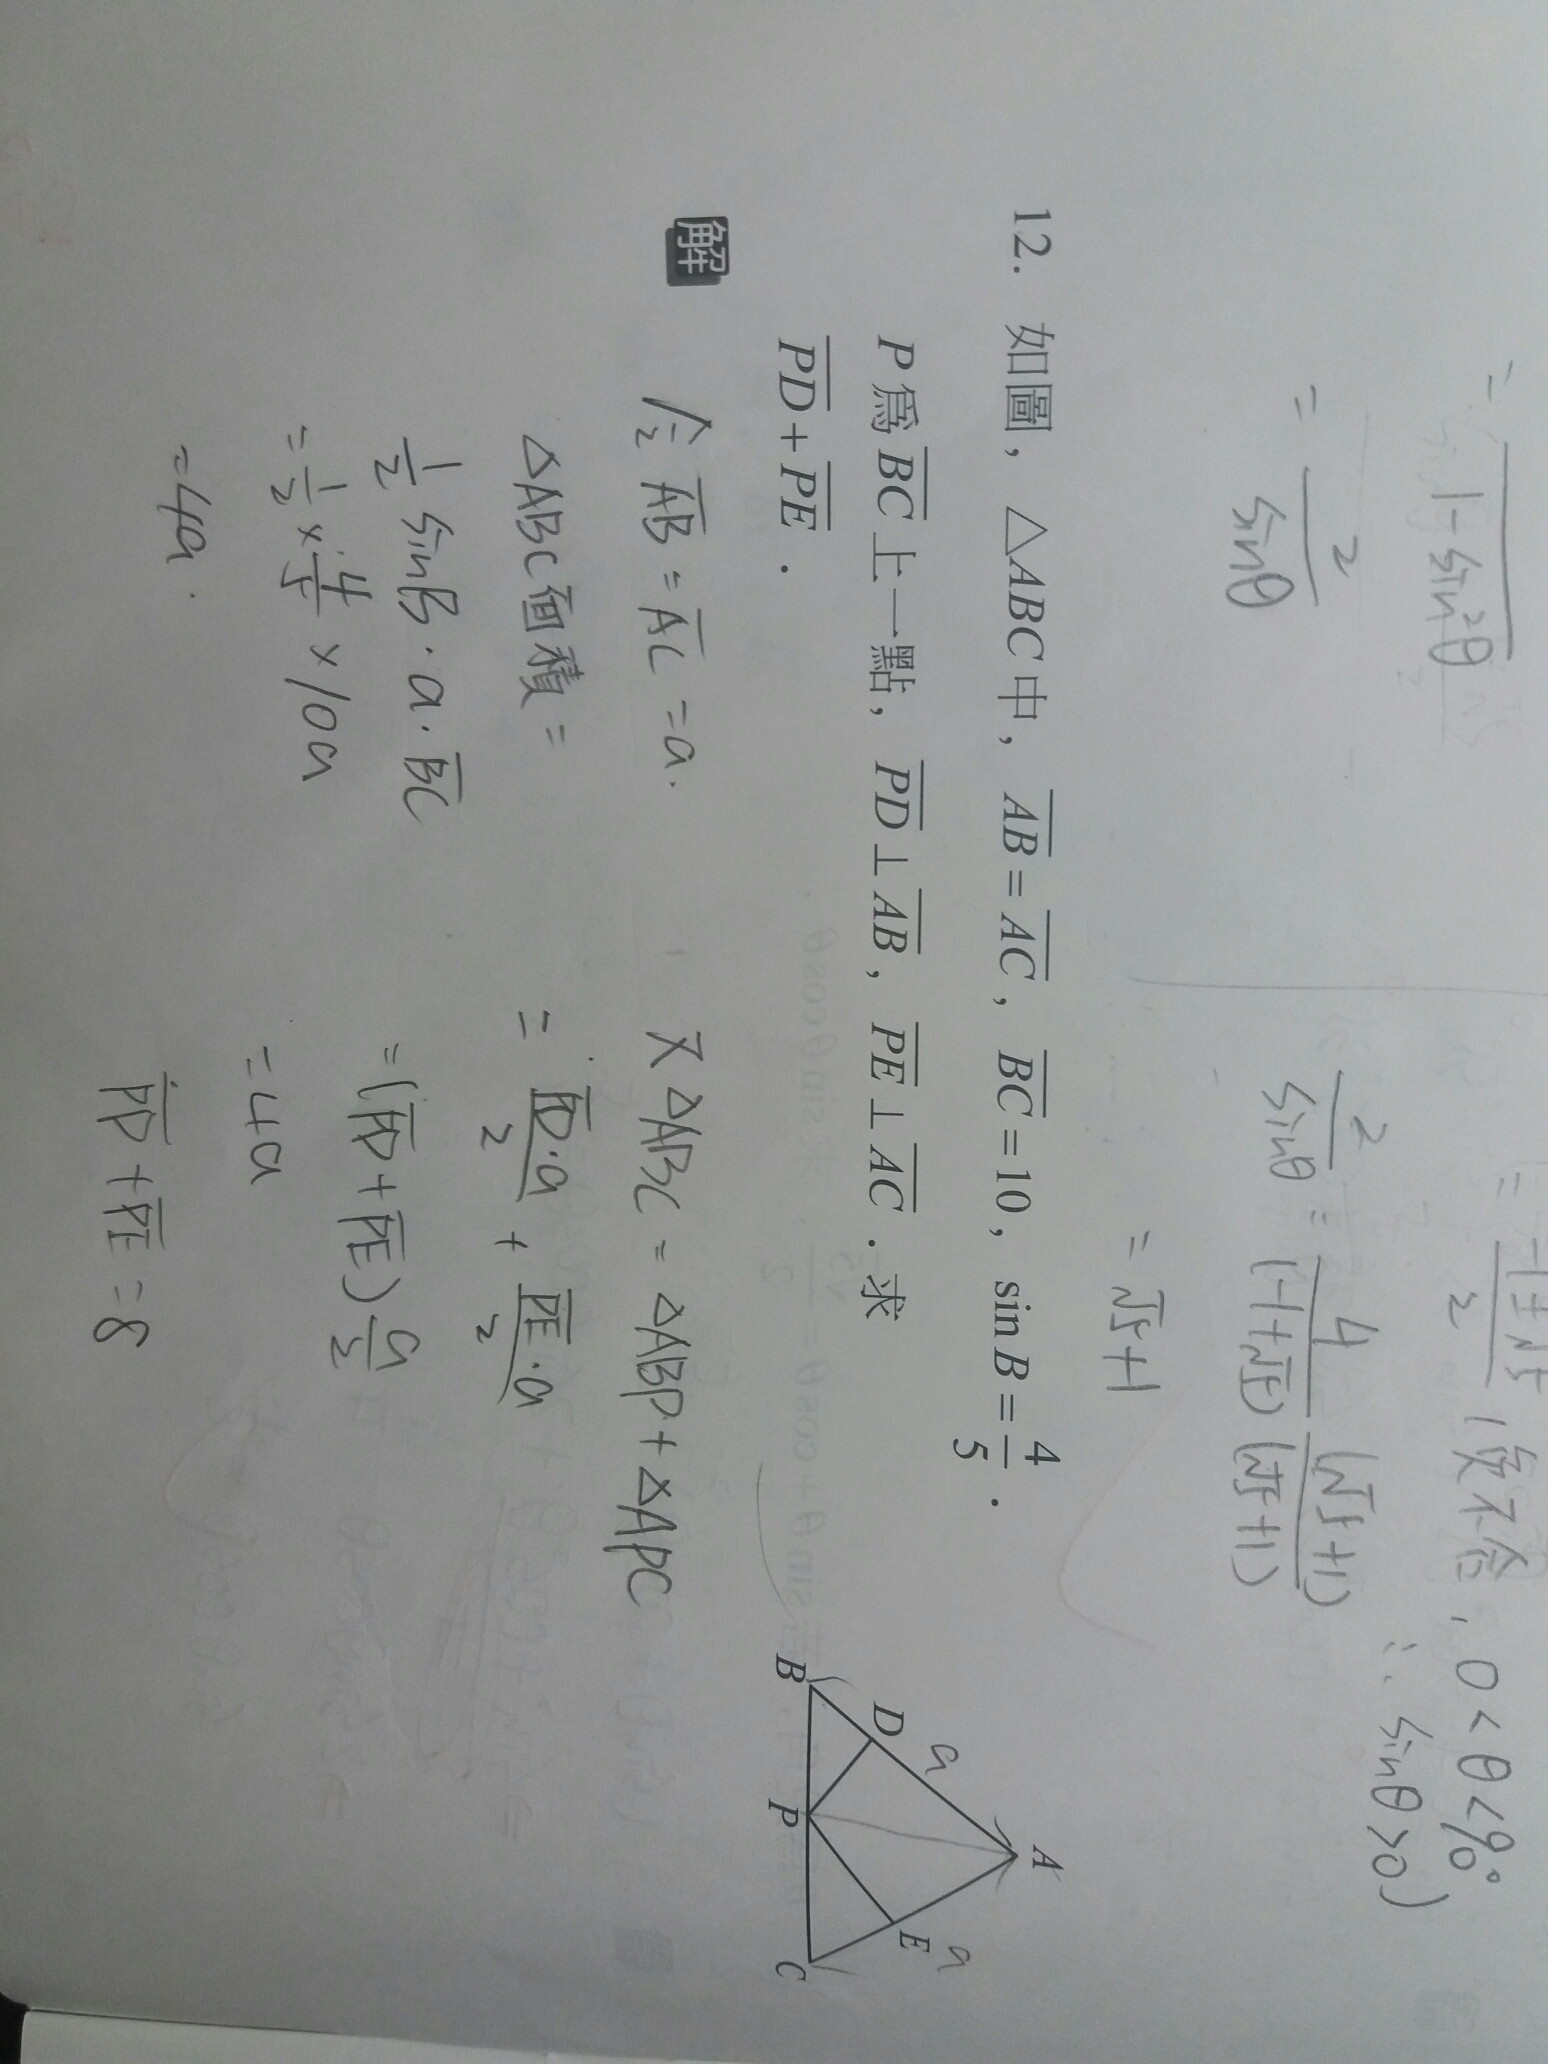 = 1-sin²θ
-1±√5/2 (負不合, 0<θ<90°
= 2/sinθ
∴ sinθ>0)
2/sinθ = 4/(-1+√5) (√5+1)/(√5+1)
= √5+1
12. 如圖，△ABC中，AB=AC，BC=10，sin B=4/5．
P為BC上一點，PD⊥AB，PE⊥AC．求
PD+PE．
A
B
C
D
E
P
a
a
解
令 AB=AC=a.
△ABC面積=
1/2 sinB·a·BC
=1/2×4/5×10a
=4a.
又△ABC=△ABP+△APC
= PD·a/2 + PE·a/2
=(PD+PE)a/2
=4a
PD+PE=8